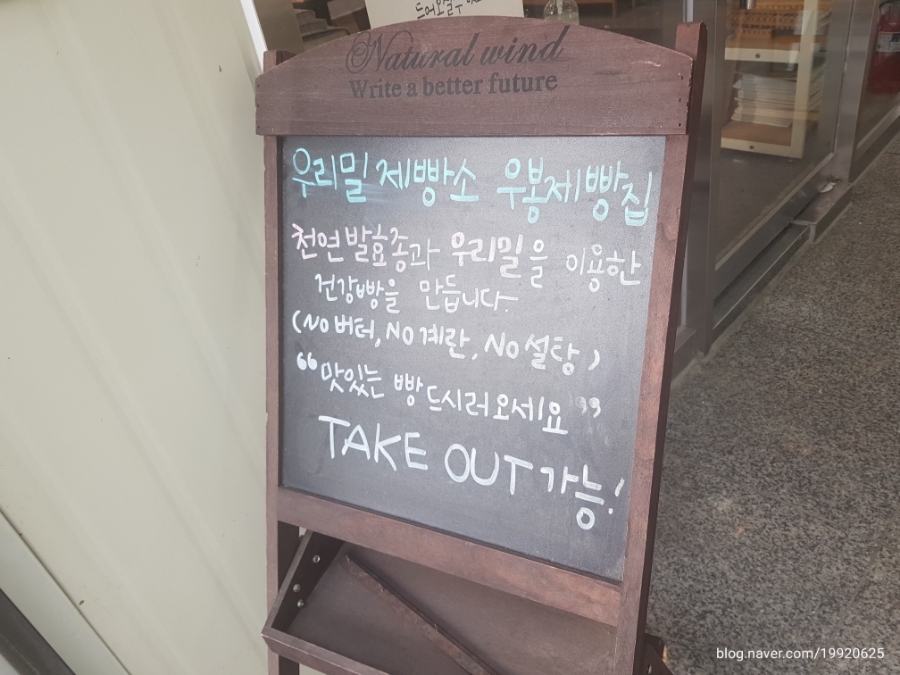 Natural wind
Write a better future
우리밀 제빵소 우봉제빵집
천연발효종과 우리밀을 이용한
건강빵을 만듭니다.
(No 버터, No 계란, No 설탕)
“맛있는 빵 드시러 오세요”
TAKE OUT 가능!
blog.naver.com/19920625